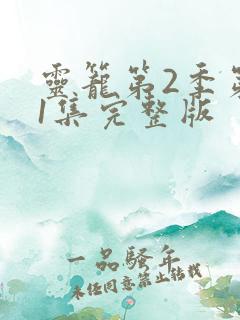 靈籠第2季第
1集完整版
一品騷年
未任同意禁止轉載